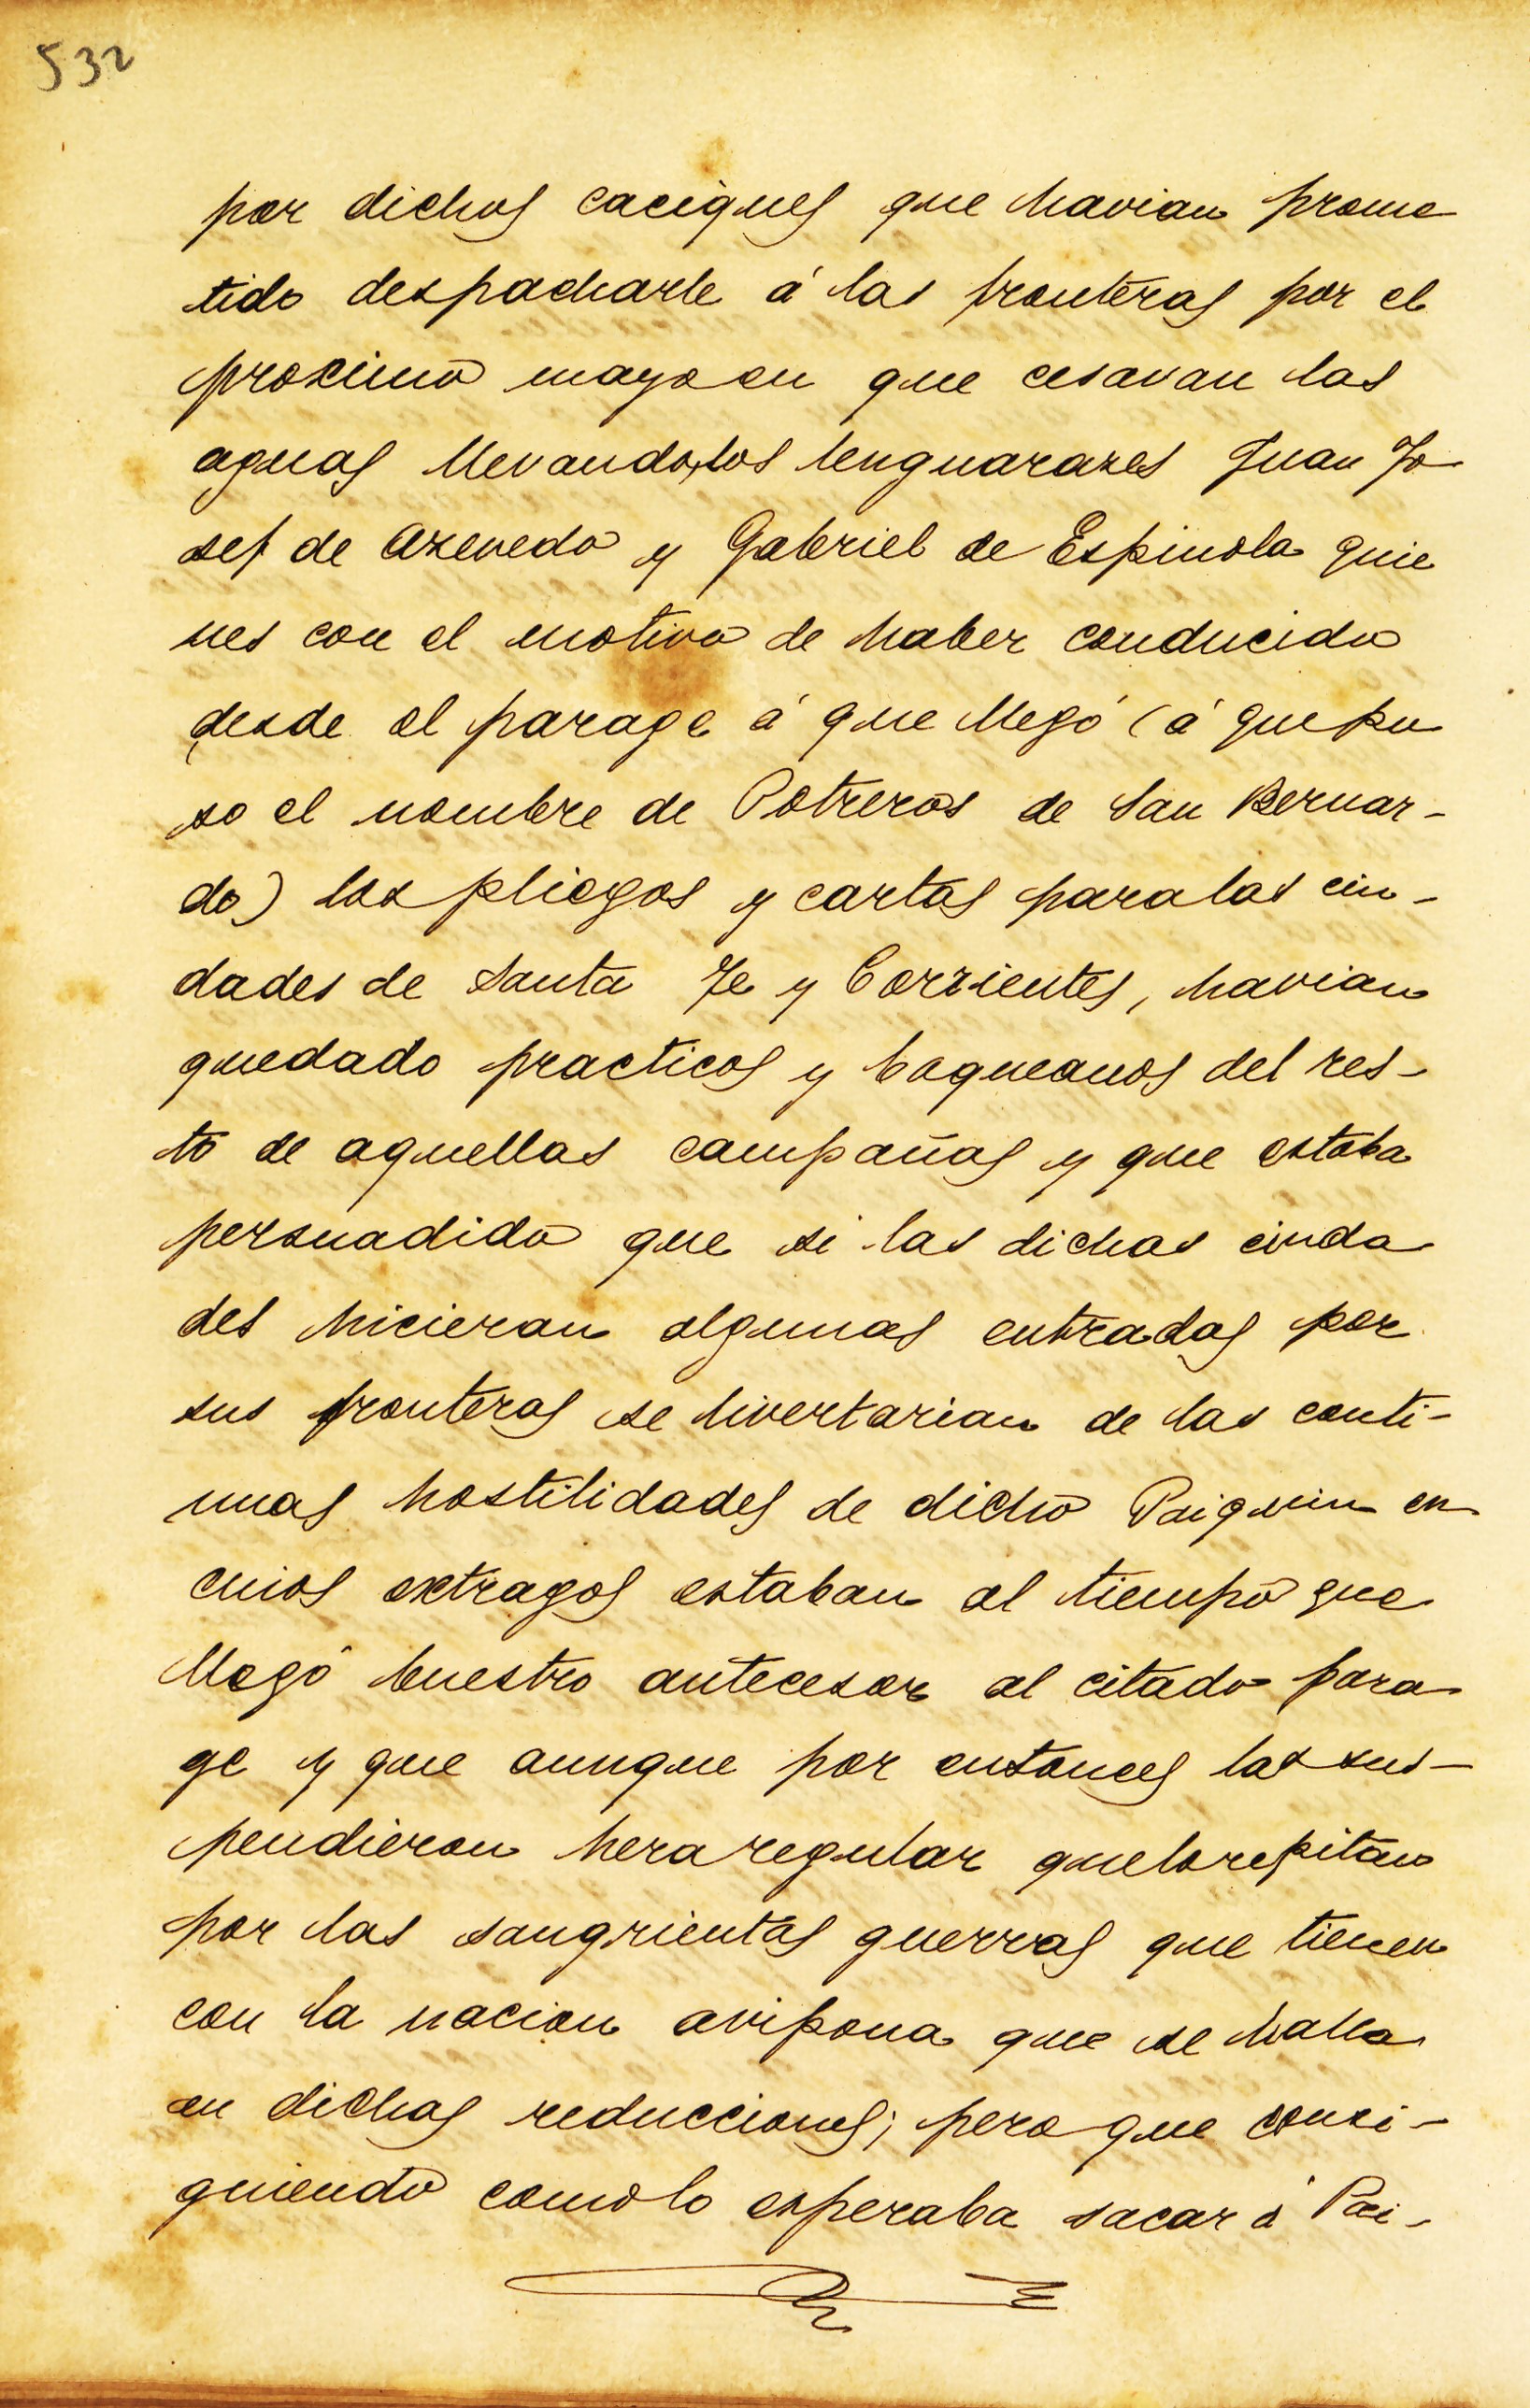 532
por dichos caciques que havian prome
tido despacharle á las fronteras por el
proximo mayo en que cesavan las
aguas llevando los lenguarazes Juan Jo
sef de Azevedo y Gabriel de Espinola quie
nes con el motivo de haber conducido
desde el parage á que llegó (á que pu
so el nombre de Potreros de San Bernar-
do) los pliegos y cartas para las ciu-
dades de Santa Fe y Corrientes, havian
quedado practicos y baqueanos del res-
to de aquellas campañas y que estaba
persuadido que si las dichas ciuda
des hicieran algunas entradas por
sus fronteras se livertarian de las conti-
nuas hostilidades de dicho Paiquin en
cuios extragos estaban al tiempo que
llegó buestro antecesor al citado para
ge y que aunque por entonces las sus-
pendieron hera regular que lo repitan
por las sangrientas guerras que tienen
con la nacion avipona que se halla
en dichas reducciones; pero que consi-
guiendo como lo esperaba sacar á Pai-